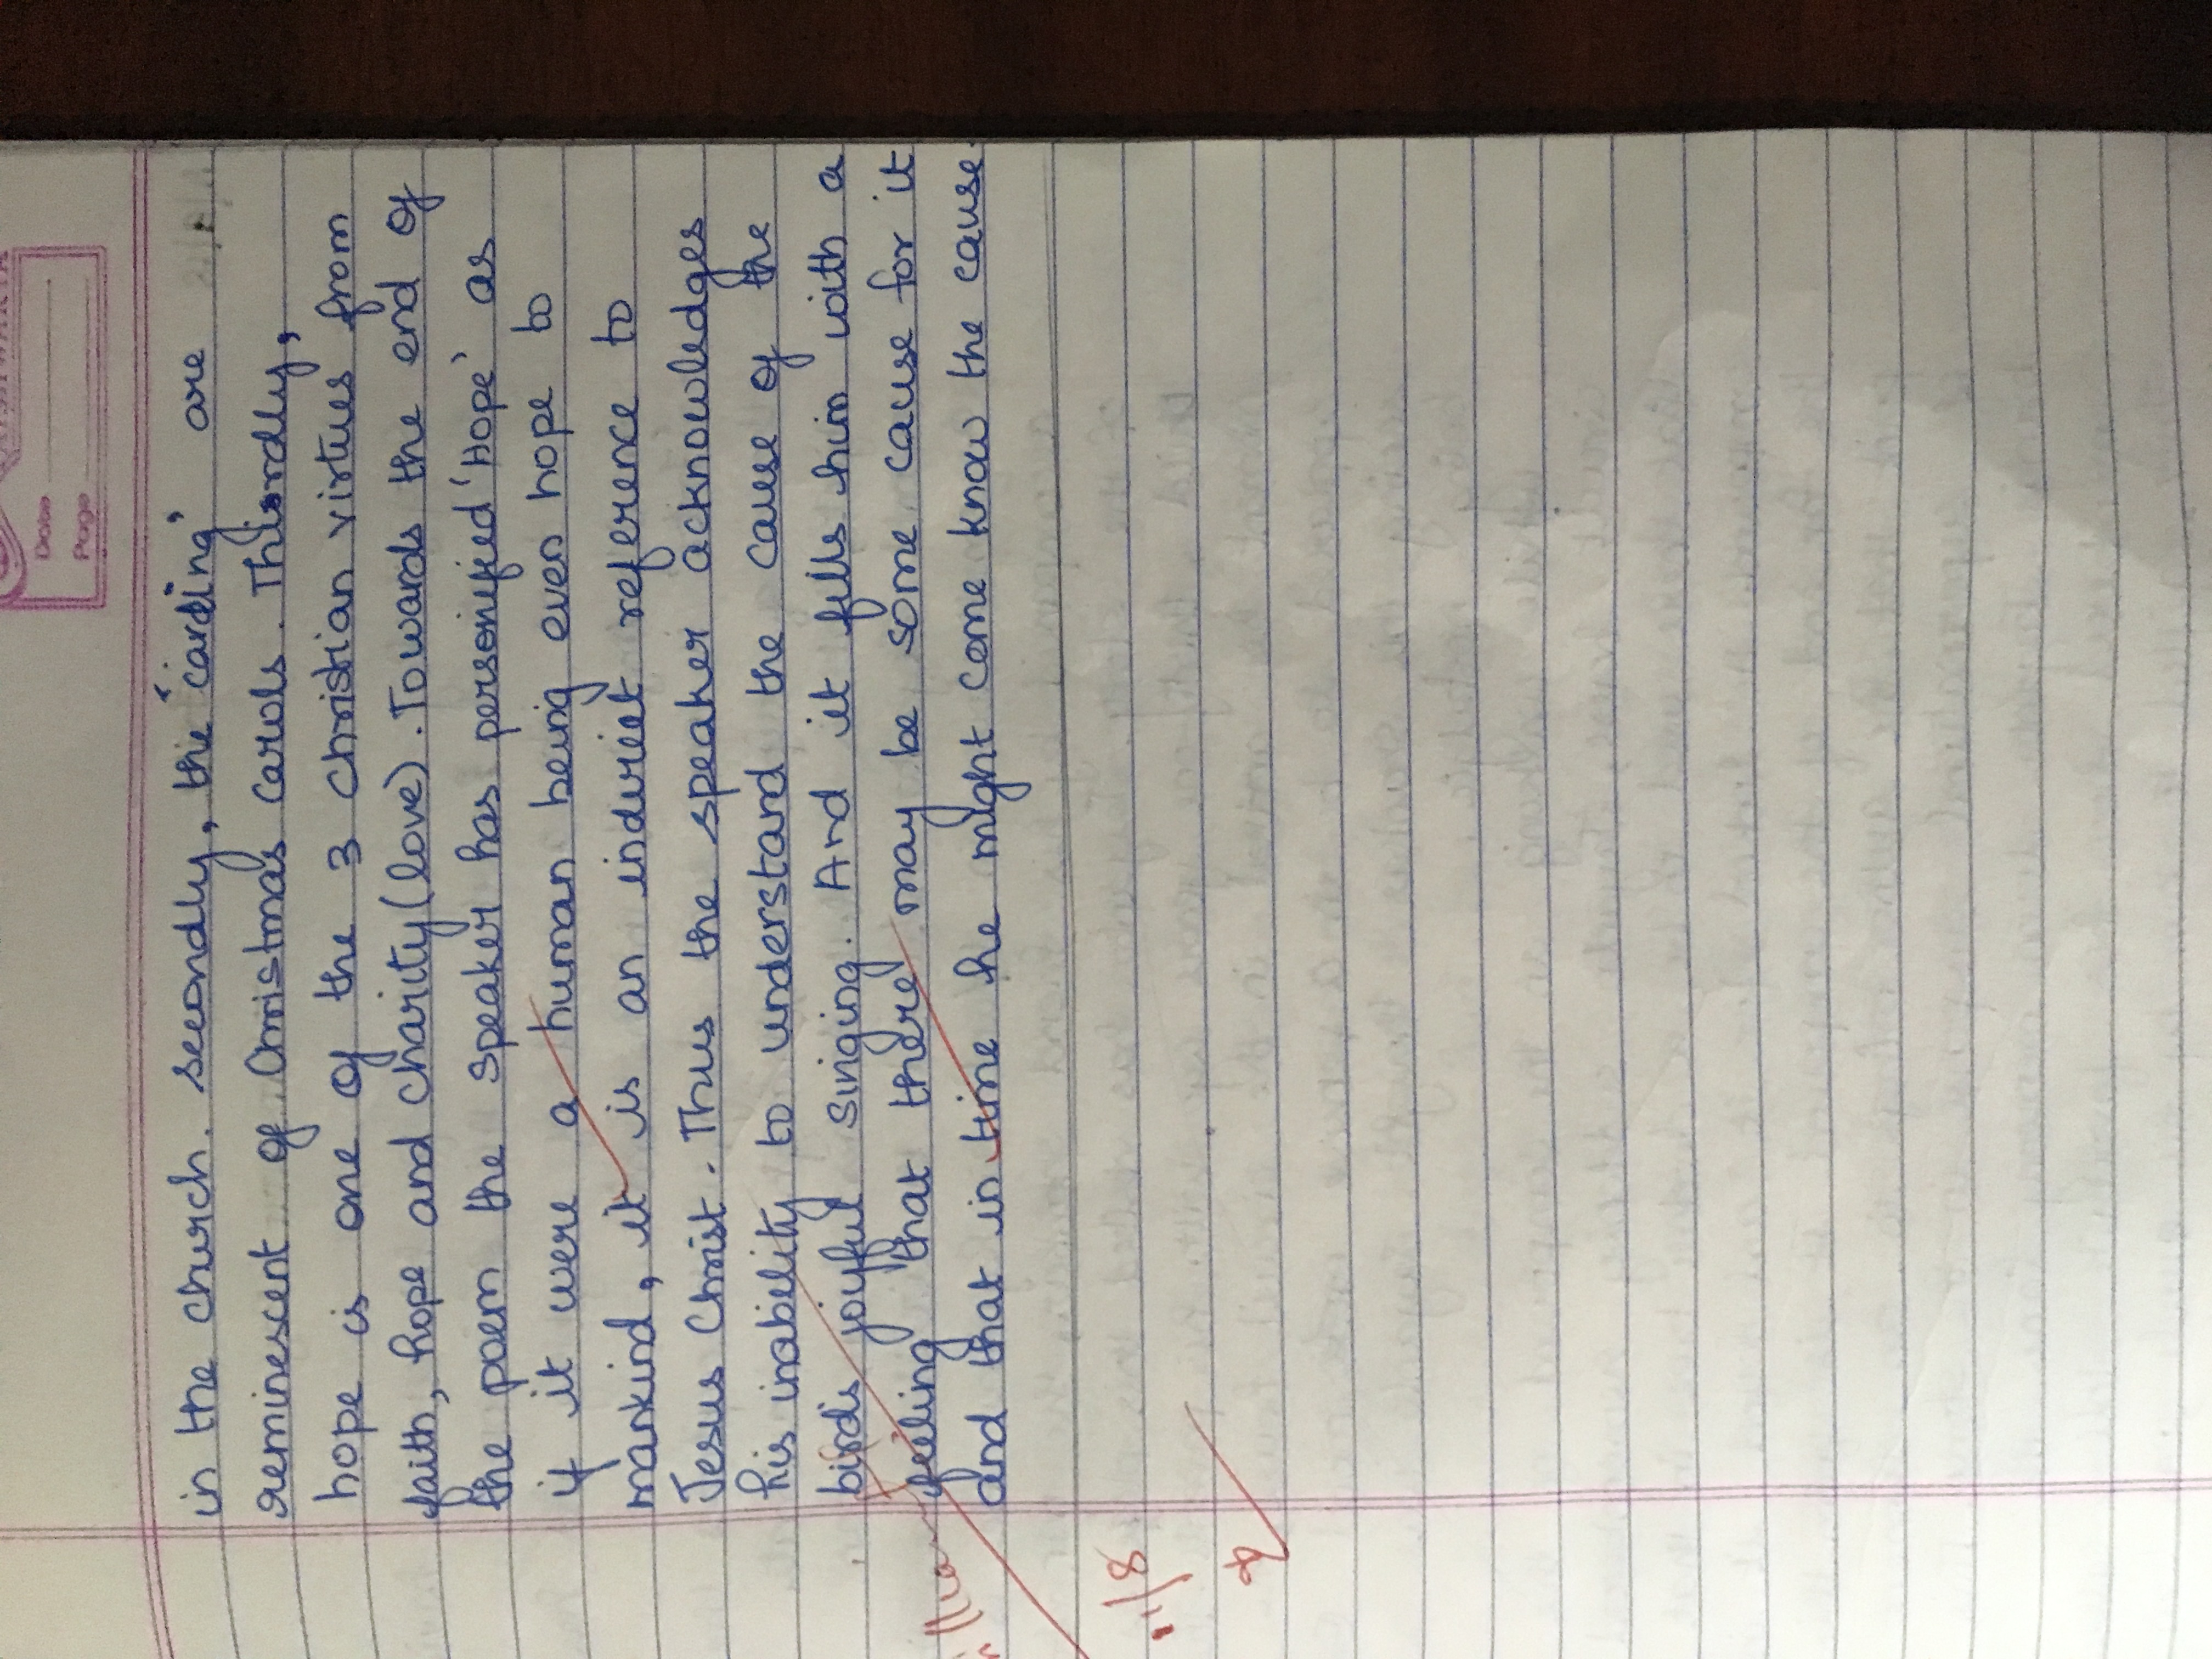 Date
Page
in the church. Secondly, the 'caroling' are
reminescent of Christmas carols. Thirdly,
hope is one of the 3 christian virtues from
faith, hope and charity (love). Towards the end of
the poem the speaker has personified 'Hope' as
if it were a human being even hope to
mankind, it is an indirect reference to
Jesus Christ. Thus the speaker acknowledges
his inability to understand the cause of the
bird's joyful singing. And it fills him with a
feeling that there may be some cause for it
and that in time he might come know the cause.